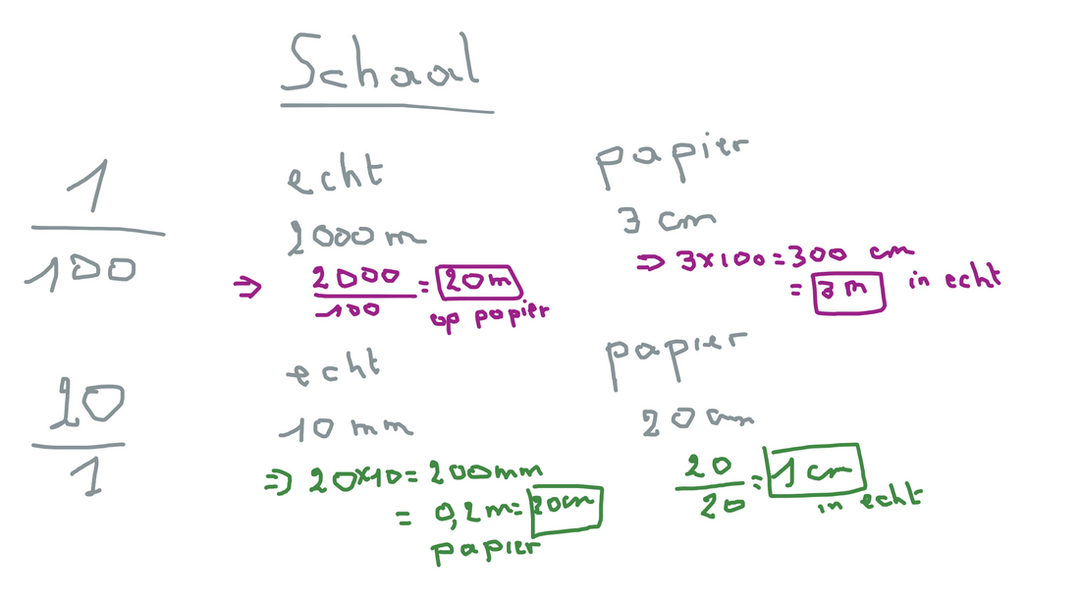 Schaal
1
100
echt
2000 m
⇒ 2000
100
= 20 m
op papier
papier
3 cm
⇒ 3x100 = 300 cm
= 3 m in echt
20
1
echt
10 mm
⇒ 20x10 = 200 mm
= 0,2 m = 20 cm
papier
papier
20 cm
20
20
= 1 cm
in echt